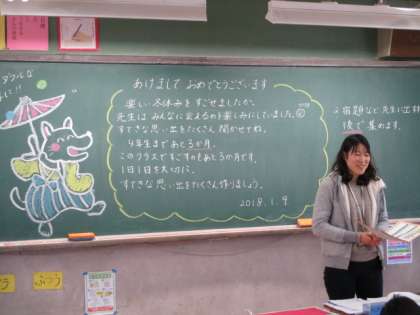 あけまして おめでとうございます
楽しい冬休みをすごせましたか。
先生は みんなに会えるのを楽しみにしていました。
すてきな思い出をたくさん 聞かせてね。
4年生まで あと3か月。
このクラスですごすのもあと3か月です。
1日1日を大切に、
すてきな思い出をたくさん作りましょう。
2018.1.9
宿題など 先生に出す
後で 集めます。
ふつう